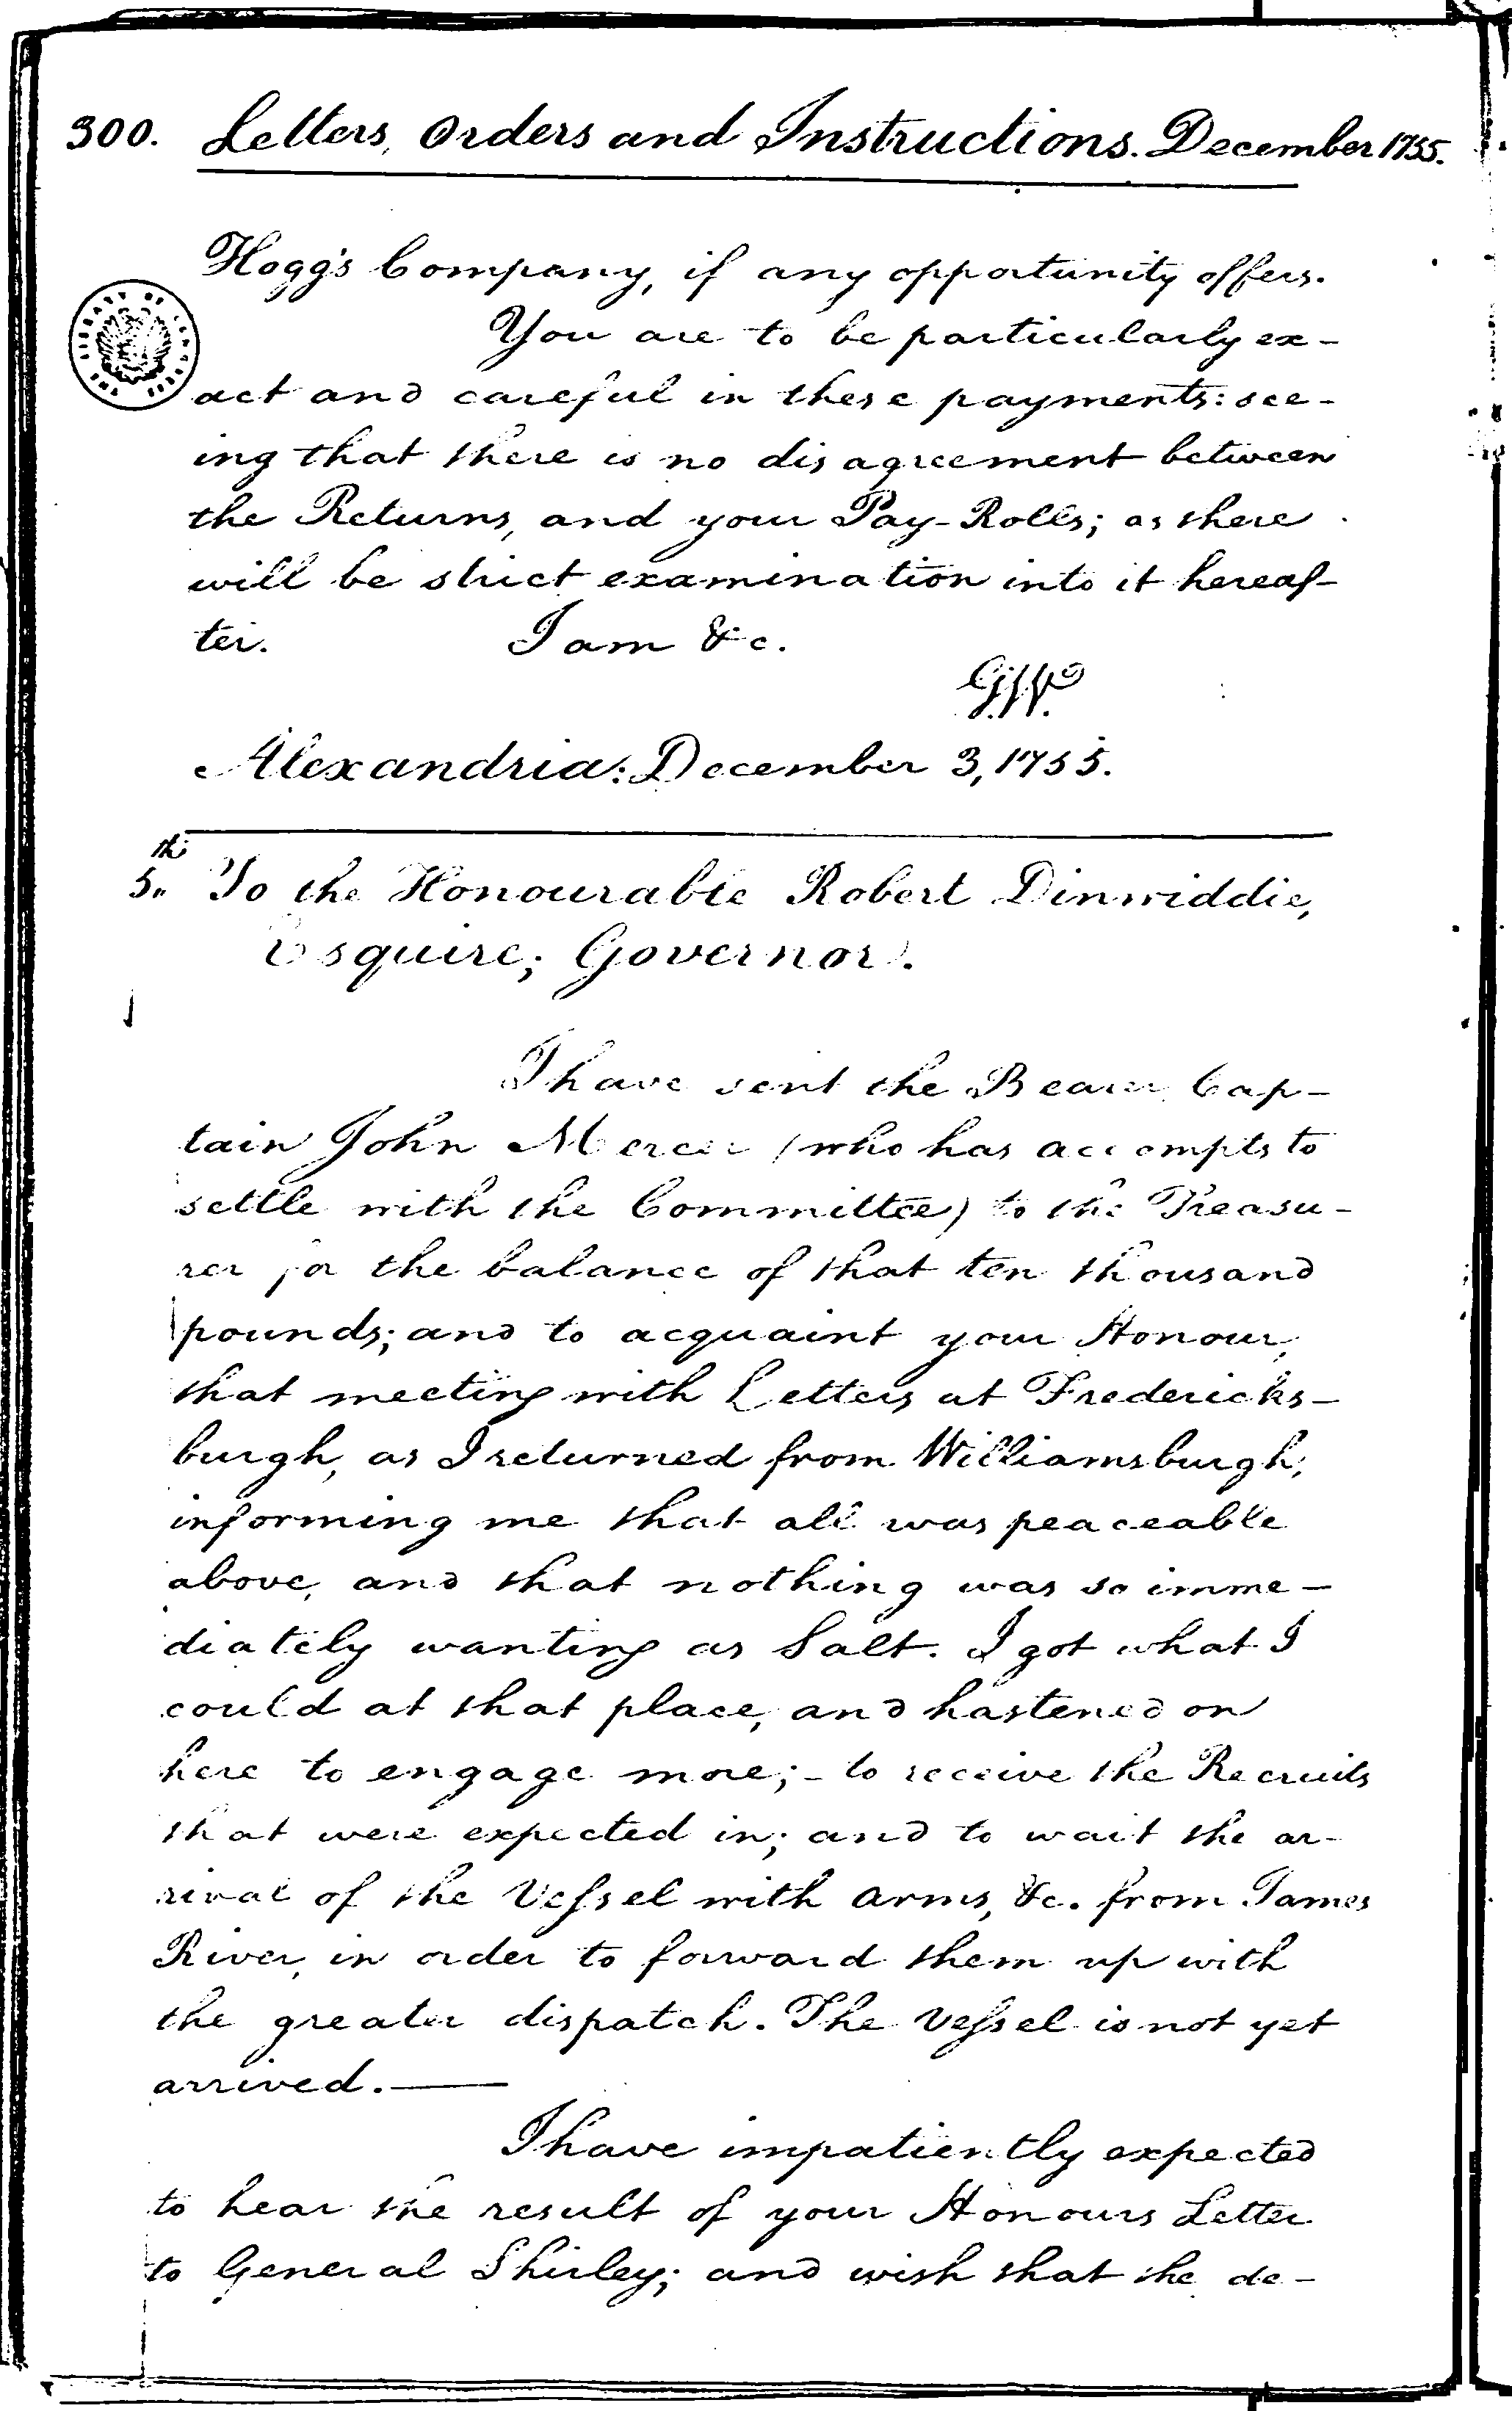 300. Letters, Orders and Instructions. December 1755.
Hogg's Company, if any opportunity offers.
You are to be particularly ex-
act and careful in these payments: see-
ing that there is no disagreement between
the Returns, and your Pay-Rolls; as there
will be strict examination into it hereaf-
ter. I am &c.
G.W.
Alexandria: December 3, 1755.
5th. To the Honourable Robert Dinwiddie,
Esquire; Governor.
I have sent the Bearer Cap-
tain John Mercer (who has accompts to
settle with the Committee) to the Treasu-
rer for the balance of that ten thousand
pounds; and to acquaint your Honour,
that meeting with Letters at Fredericks-
burgh, as I returned from Williamsburgh,
informing me that all was peaceable
above, and that nothing was so imme-
diately wanting as Salt. I got what I
could at that place, and hastened on
here to engage more; - to receive the Recruits
that were expected in; and to wait the ar-
rival of the Vessel with arms, &c. from James
River, in order to forward them up with
the greater dispatch. The Vessel is not yet
arrived.—
I have impatiently expected
to hear the result of your Honours Letter
to General Shirley; and wish that the de-